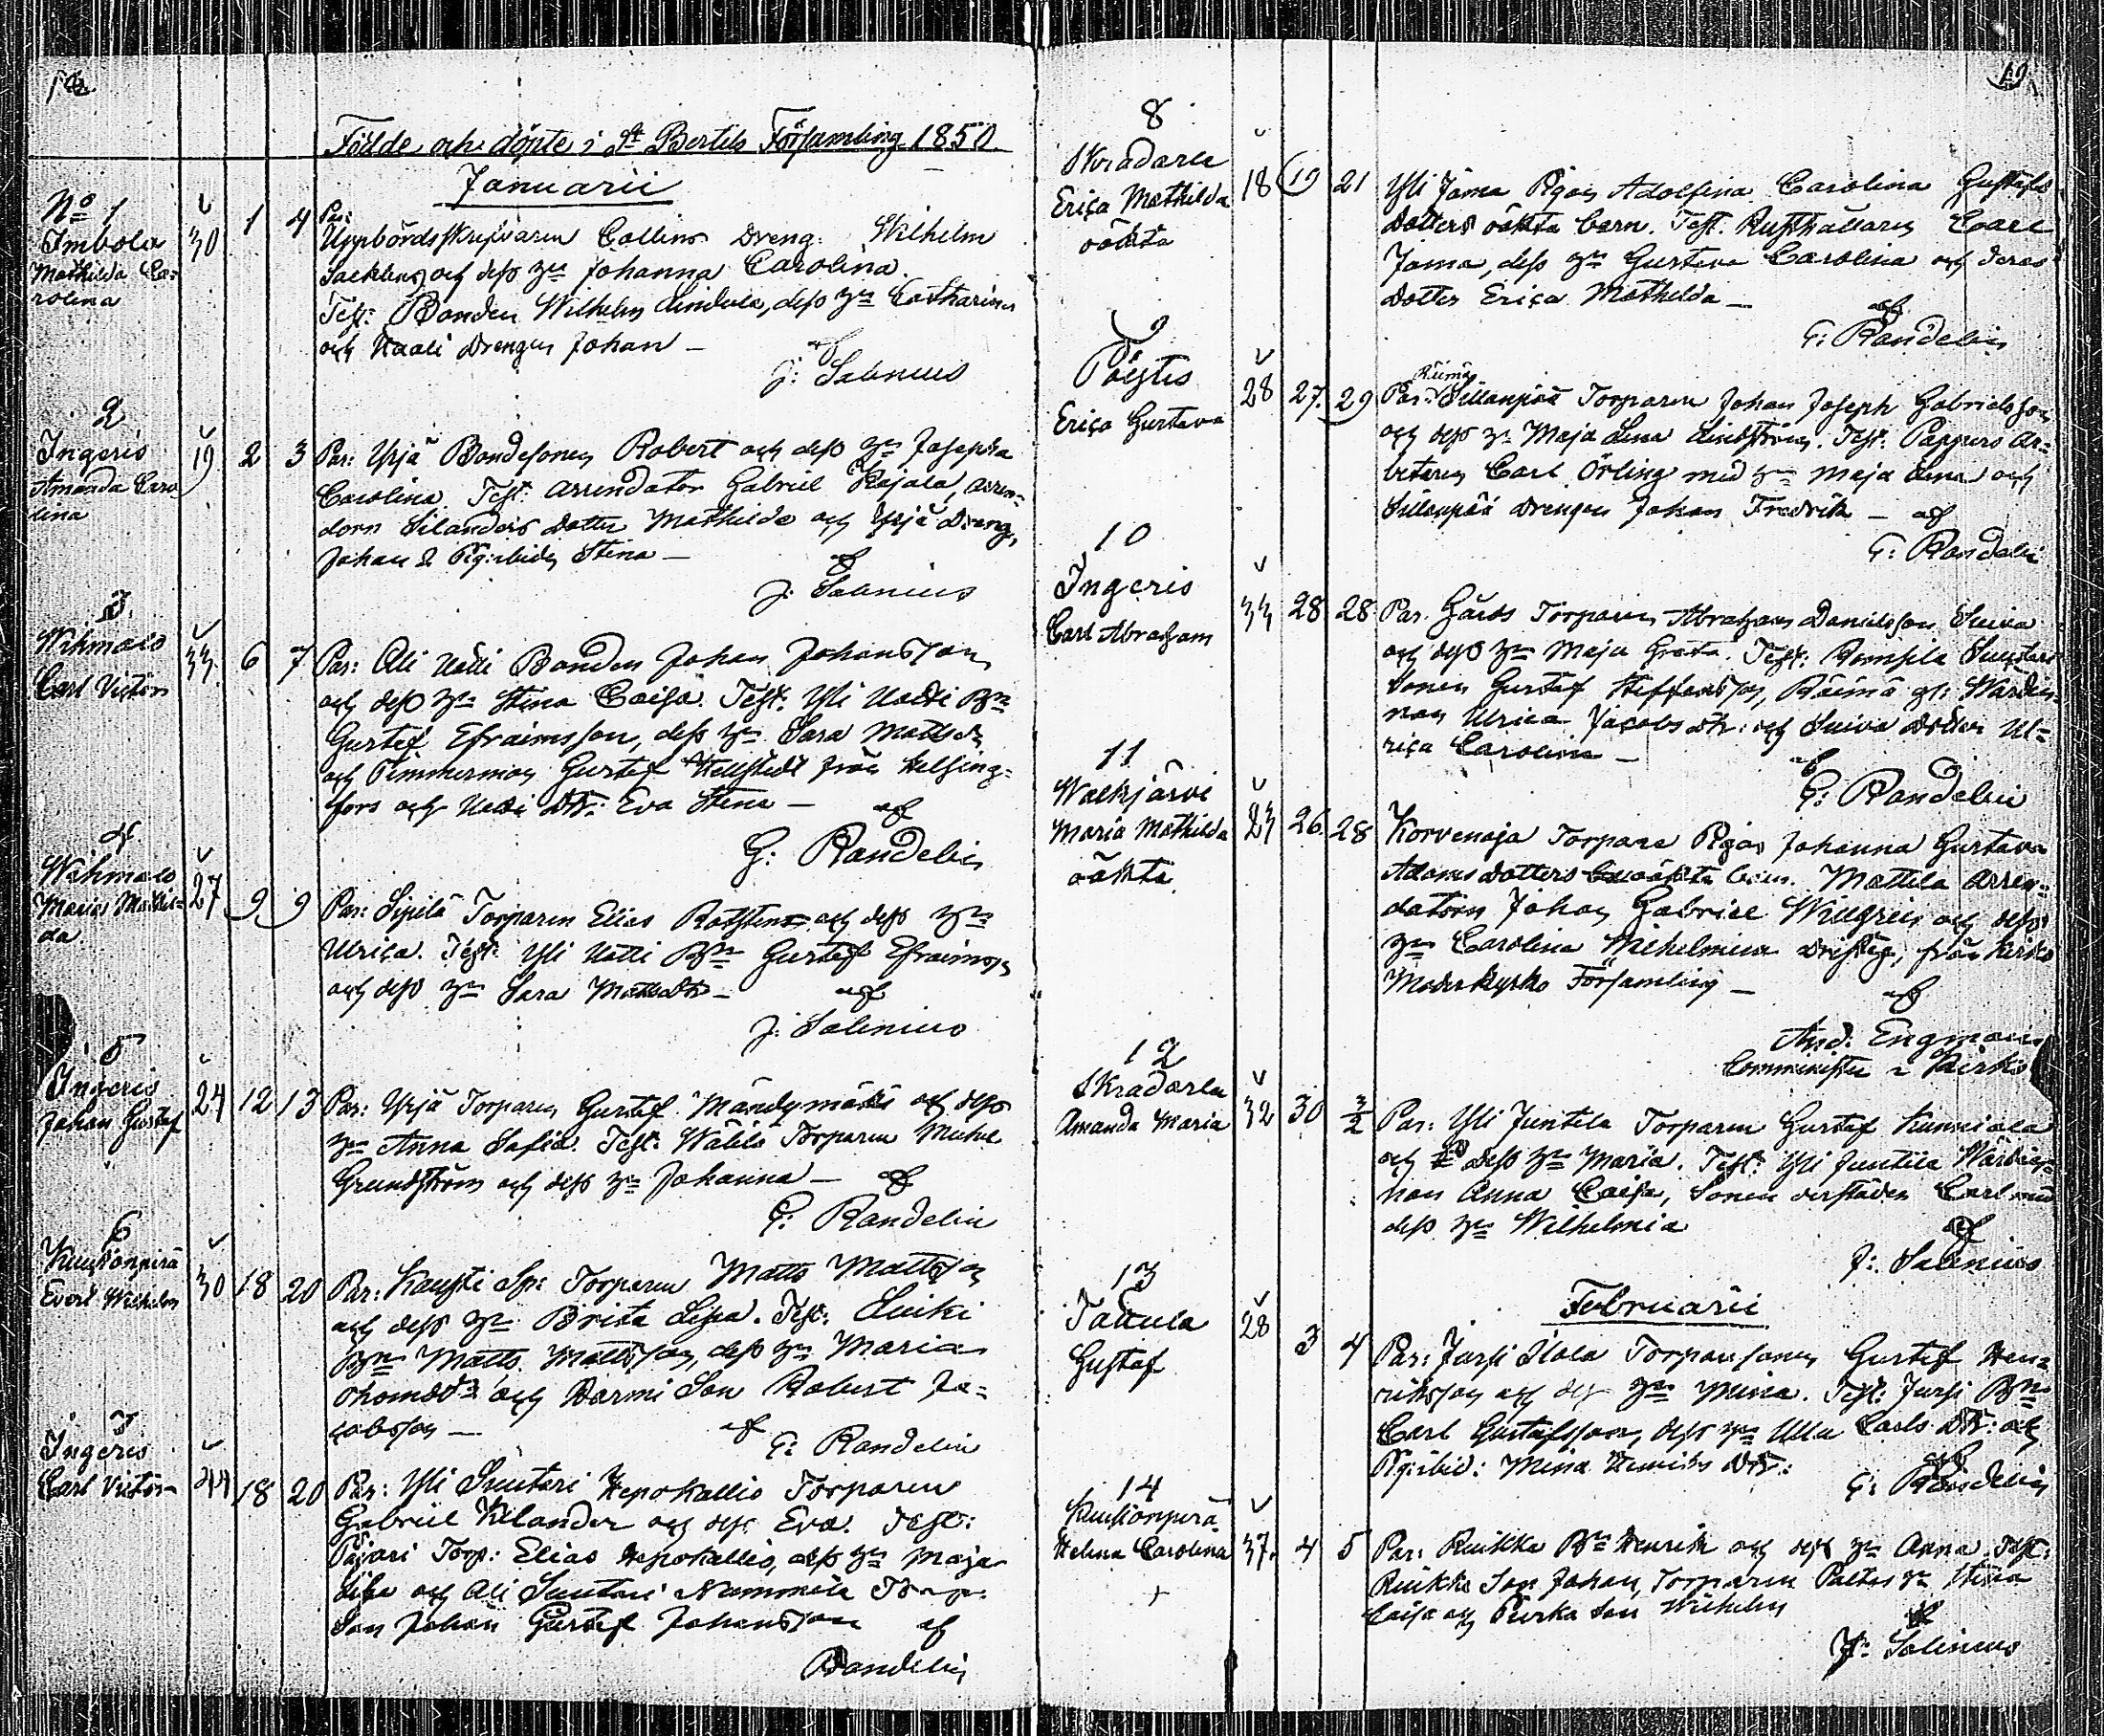 Födde och döpte i St Bertils Församling 1850
Januarii
No 1
Imbola
Mathilda Ca=
rolina
30 1 4
Par:
Uppbördsskrifvaren Collins Dreng: Wilhelm
och dess hu Johanna Carolina.
Test: Bonden Wilhelm Lindula, dess hu Catharina
och Uoti Drengen Johan —
af
J: Salenius
2
Ingeris
Amanda Caro
lina
19 2 3
Par: Yrjä Bondesonen Robert och dess hu Josepha
Carolina. Test: Arrendator Gabriel Rajala, Arren=
dorn Silanders Dotter Mathilda och Yrjä Dreng
Johan & Pig: ibid Stina —
af
J: Salenius
3
Wihmalo
Carl Victor
33 6 7
Par: Ali Uoti Bonden Johan Johansson
och dess hu Stina Caisa. Test: Yli Uoti Bn
Gustef Efraimsson, dess hu Sara Mattsdr
och Timmerman Gustef Kellstedt från Helsing=
fors och Uoti Dtr: Eva Stina —
af
G: Randelin
4
Wihmalo
Maria Mathil=
da
27 9 9
Par: Sipilä Torparen Elias Rothsten och dess hu
Ulrica. Test: Yli Uotti Bn Gustef Efraimss
och dess hu Sara Mattsdtr —
af
J: Salenius
5
Ingeris
Johan Gustaf
24 12 13
Par: Yrjä Torparen Gustef Mändymäki och dess
hu Anna Safia. Test: Wälilä Torparen Michel
Grundström och dess hu Johanna —
af
G: Randelin
6
Kuuskonpirä
Evert Wilhelm
30 18 20
Par: Kausti Sp: Torparen Matts Mattsson
och dess hu Brita Lisa. Test: Luiki
Bn Matts Mattsson, dess hu Maria
Thomasdt och Hormi Son Robert Ja=
cobsson —
af
G: Randelin
7
Ingeris
Carl Victor
44 18 20
Par: Yli Suutari Hepokallio Torparen
Gabriel Kilander och dess Eva. Test:
Pajari Torp: Elias Hepokallio, dess hu Maja
Lisa och Ali Suutari Nummela Torp:
Son Johan Gustef Johansson
af
Randelin
19
8
Skradarla
Erica Mathilda
oäkta
18 19 21
Yli Jäma Pigan Adolfina Carolina Gustafs
Dotters oäkta barn. Test: Rusthållaren Carl
Jäma, dess hu Gustava Carolina och deras
Dotter Erica Mathilda —
af
G: Randelin
9
Pöytis
Erica Gustava
28 27. 29
Räimä
Par: Sillanpää Torparen Johan Joseph Gabrielsson
och dess hu Maja Lena Lindström. Test: Pappers Ar=
betaren Carl Örling med hu Maja Lena och
Sillanpää Drengen Johan Fredrik — af
G: Randelin
10
Ingeris
Carl Abraham
33 28 28
Par: Gårds Torparen Abraham Danielsson Suiva
och dess hu Maja Greta. Test: Rompila Suutari
Sonen Gustaf Steffansson, Räimä gl: Wärdin=
nan Ulrica Jacobs dtr: och Suiva Dotter Ul=
rica Carolina —
af
G: Randelin
11
Walkjärvi
Maria Mathilda
oäkta
23 26. 28
Korvenoja Torpare Pigan Johanna Gustava
Adams Dotters oäkta barn. Mattila Arren=
datorn Johan Gabriel Willgren och dess
hu Carolina Wilhelmina från Kisko
Moderkyrko Församling —
af
And: Engman
Comminister i Kisko
12
Skradarla
Amanda Maria
32 30 3/2
Par: Yli Juntila Torparen Gustaf Kunniala
och dess hu Maria. Test: Yli Juntila Wärdin=
nan Anna Caisa, Sonen derstädes Carl med
dess hu Wilhelmia
af
J: Salenius
Februarii
13
Tattula
Gustaf
28 3 4
Par: Jursi Ilola Torparesonen Gustef Hen=
riksson och dess hu Mina. Test: Jursi Bn
Carl Gustafsson, dess hu Ulla Carls Dtr: och
Pig: ibid: Mina Henriks Dtr:
af
G: Randelin
14
Kuuskonpirä
Helena Carolina
+
37. 4 5
Par: Ruikka Bn Henrik och dess hu Anna. Test:
Ruikka Son Johan, Torparen Paltas hu Stina
Caisa och Purka Son Wilhelm
af
J: Salenius